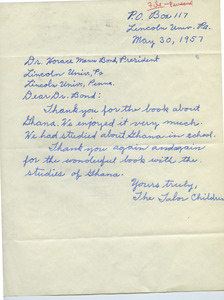 File - personal
P.O. Box 117
Lincoln Univ. Pa.
May 30, 1957
Dr. Horace Mann Bond, President
Lincoln Univ., Pa.
Lincoln Univ., Penna.
Dear Dr. Bond:
Thank you for the book about
Ghana. We enjoyed it very much.
We had studied about Ghana in school.
Thank you again and again
for the wonderful book with the
studies of Ghana.
Yours truly,
The Tabor Children